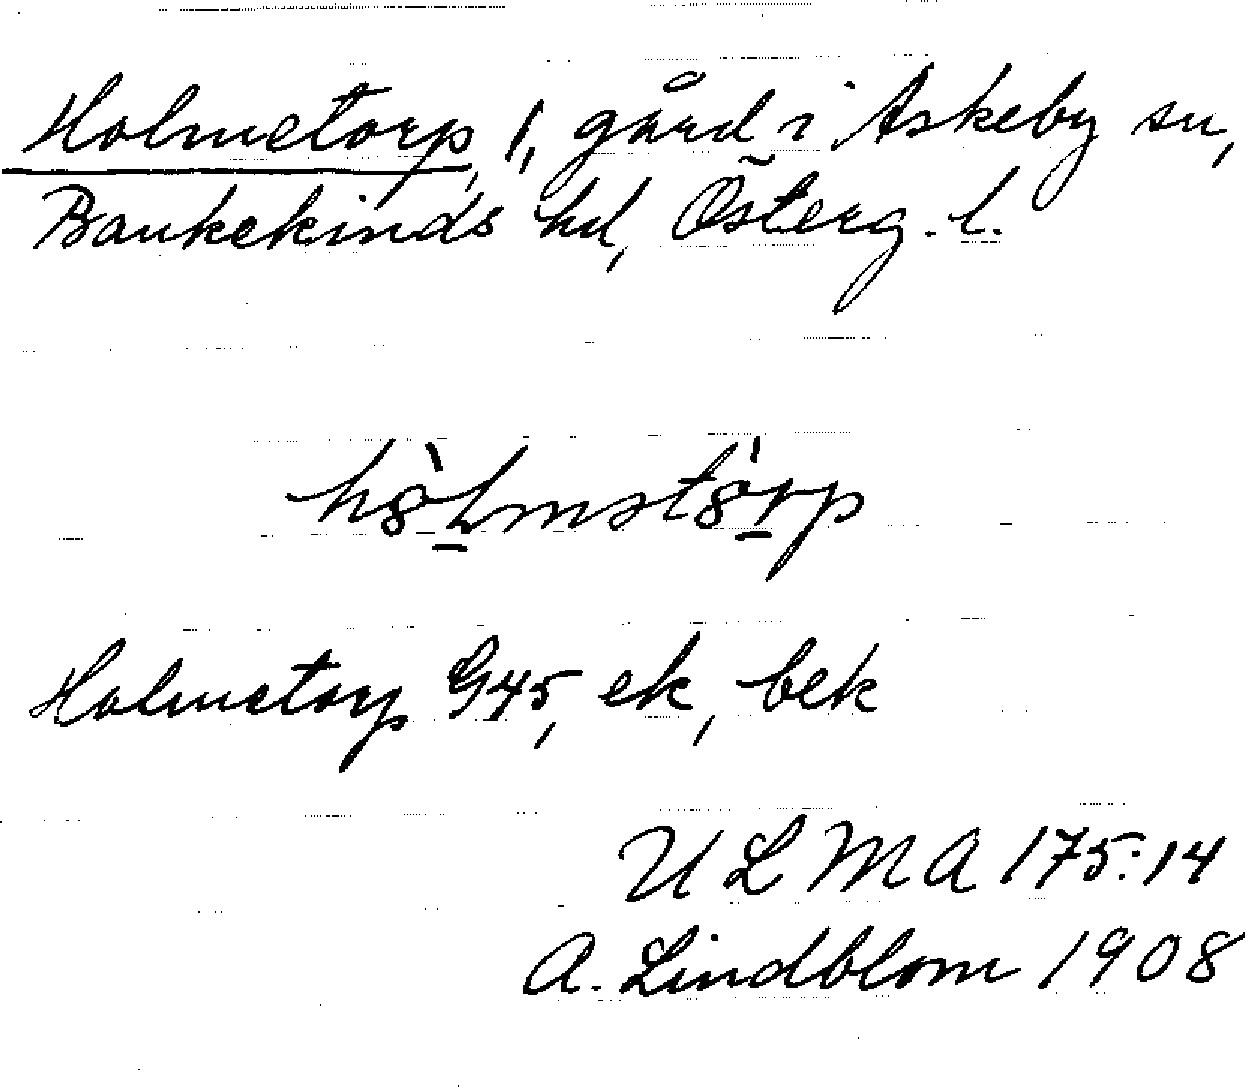 Holmetorp, 1, gård i Askeby sn,
Bankekinds hd, Österg. l.
hö̀lmstö́rp
Holmetorp G45, ek, bek
ULMA 175:14
A. Lindblom 1908